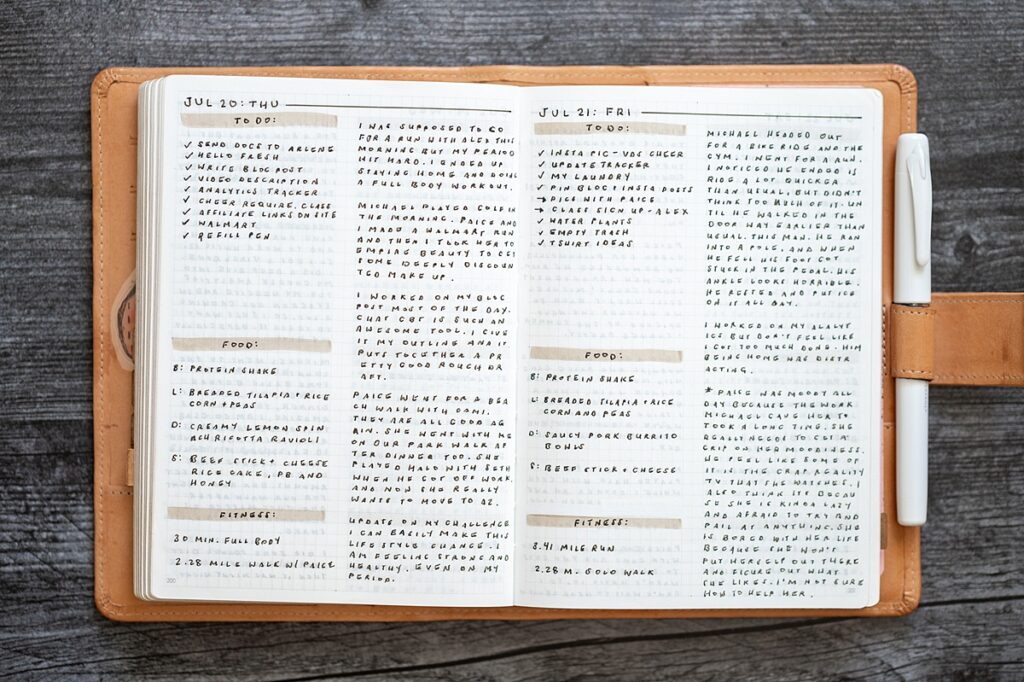 JUL 20: THU
TO DO:
✓ SEND DOCS TO ARLENE
✓ HELLO FRESH
✓ WRITE BLOG POST
✓ VIDEO DESCRIPTION
✓ ANALYTICS TRACKER
✓ CHEER REQUIRE. CLASS
✓ AFFILIATE LINKS ON SITE
✓ WALMART
✓ REFILL PEN
FOOD:
B: PROTEIN SHAKE
L: BREADED TILAPIA + RICE
CORN + PEAS
D: CREAMY LEMON SPIN
ACH RICOTTA RAVIOLI
S: BEEF STICK + CHEESE
RICE CAKE, PB AND
HONEY
FITNESS:
30 MIN. FULL BODY
2.28 MILE WALK W/ PAIGE
200
I WAS SUPPOSED TO GO
FOR A RUN WITH ALEX THIS
MORNING BUT MY PERIOD
HIT HARD. I ENDED UP
STAYING HOME AND DOING
A FULL BODY WORKOUT.
MICHAEL PLAYED GOLF IN
THE MORNING. PAIGE AND
I MADE A WALMART RUN
AND THEN I TOOK HER TO
EMPIRE BEAUTY TO GET
SOME DEEPLY DISCOUN
TED MAKE UP.
I WORKED ON MY BLOG
POST MOST OF THE DAY.
CHAT GBT IS SUCH AN
AWESOME TOOL. I GIVE
IT MY OUTLINE AND IT
PUTS TOGETHER A PR
ETTY GOOD ROUGH DR
AFT.
PAIGE WENT FOR A BEA
CH WALK WITH DANI.
THEY ARE ALL GOOD AG
AIN. SHE WENT WITH ME
ON OUR PARK WALK AF
TER DINNER TOO. SHE
PLAYED HALO WITH SETH
WHEN HE GOT OFF WORK,
AND NOW SHE REALLY
WANTS TO MOVE TO AZ.
UPDATE ON MY CHALLENGE
I CAN EASILY MAKE THIS
LIFE STYLE CHANGE. I
AM FEELING STRONG AND
HEALTHY, EVEN ON MY
PERIOD.
JUL 21: FRI
TO DO:
✓ INSTA PIC - VDS CHEER
✓ UPDATE TRACKER
✓ MY LAUNDRY
✓ PIN BLOG + INSTA POSTS
→ DICE WITH PAIGE
→ CLASS SIGN UP - ALEX
✓ WATER PLANTS
✓ EMPTY TRASH
✓ TSHIRT IDEAS
FOOD:
B: PROTEIN SHAKE
L: BREADED TILAPIA + RICE
CORN AND PEAS
D: SAUCY PORK BURRITO
BOWLS
S: BEEF STICK + CHEESE
FITNESS:
3.41 MILE RUN
2.28 M. SOLO WALK
MICHAEL HEADED OUT
FOR A BIKE RIDE AND THE
GYM. I WENT FOR A RUN.
I NOTICED HE ENDED IS
RIDE A LOT QUICKER
THAN USUAL, BUT DIDN'T
THINK TOO MUCH OF IT. UN
TIL HE WALKED IN THE
DOOR WAY EARLIER THAN
USUAL. THIS MAN. HE RAN
INTO A POLE, AND WHEN
HE FELL HIS FOOT GOT
STUCK IN THE PEDAL. HIS
ANKLE LOOKS HORRIBLE.
HE RESTED AND PUT ICE
ON IT ALL DAY.
I WORKED ON MY ALALYT
ICS BUT DON'T FEEL LIKE
I GOT TOO MUCH DONE. HIM
BEING HOME WAS DISTR
ACTING.
* PAIGE WAS MOODY ALL
DAY BECAUSE THE WORK
MICHAEL GAVE HER TO
TOOK A LONG TIME. SHE
REALLY NEEDS TO GET A
GRIP ON HER MOODINESS.
WE FEEL LIKE SOME OF
IT IS THE CRAP REALITY
TV THAT SHE WATCHES. I
ALSO THINK ITS BECAU
SE SHE IS KINDA LAZY
AND AFRAID TO TRY AND
FAIL AT ANYTHING. SHE
IS BORED WITH HER LIFE
BECAUSE SHE WON'T
PUT HERSELF OUT THERE
AND FIGURE OUT WHAT
SHE LIKES. I'M NOT SURE
HOW TO HELP HER.